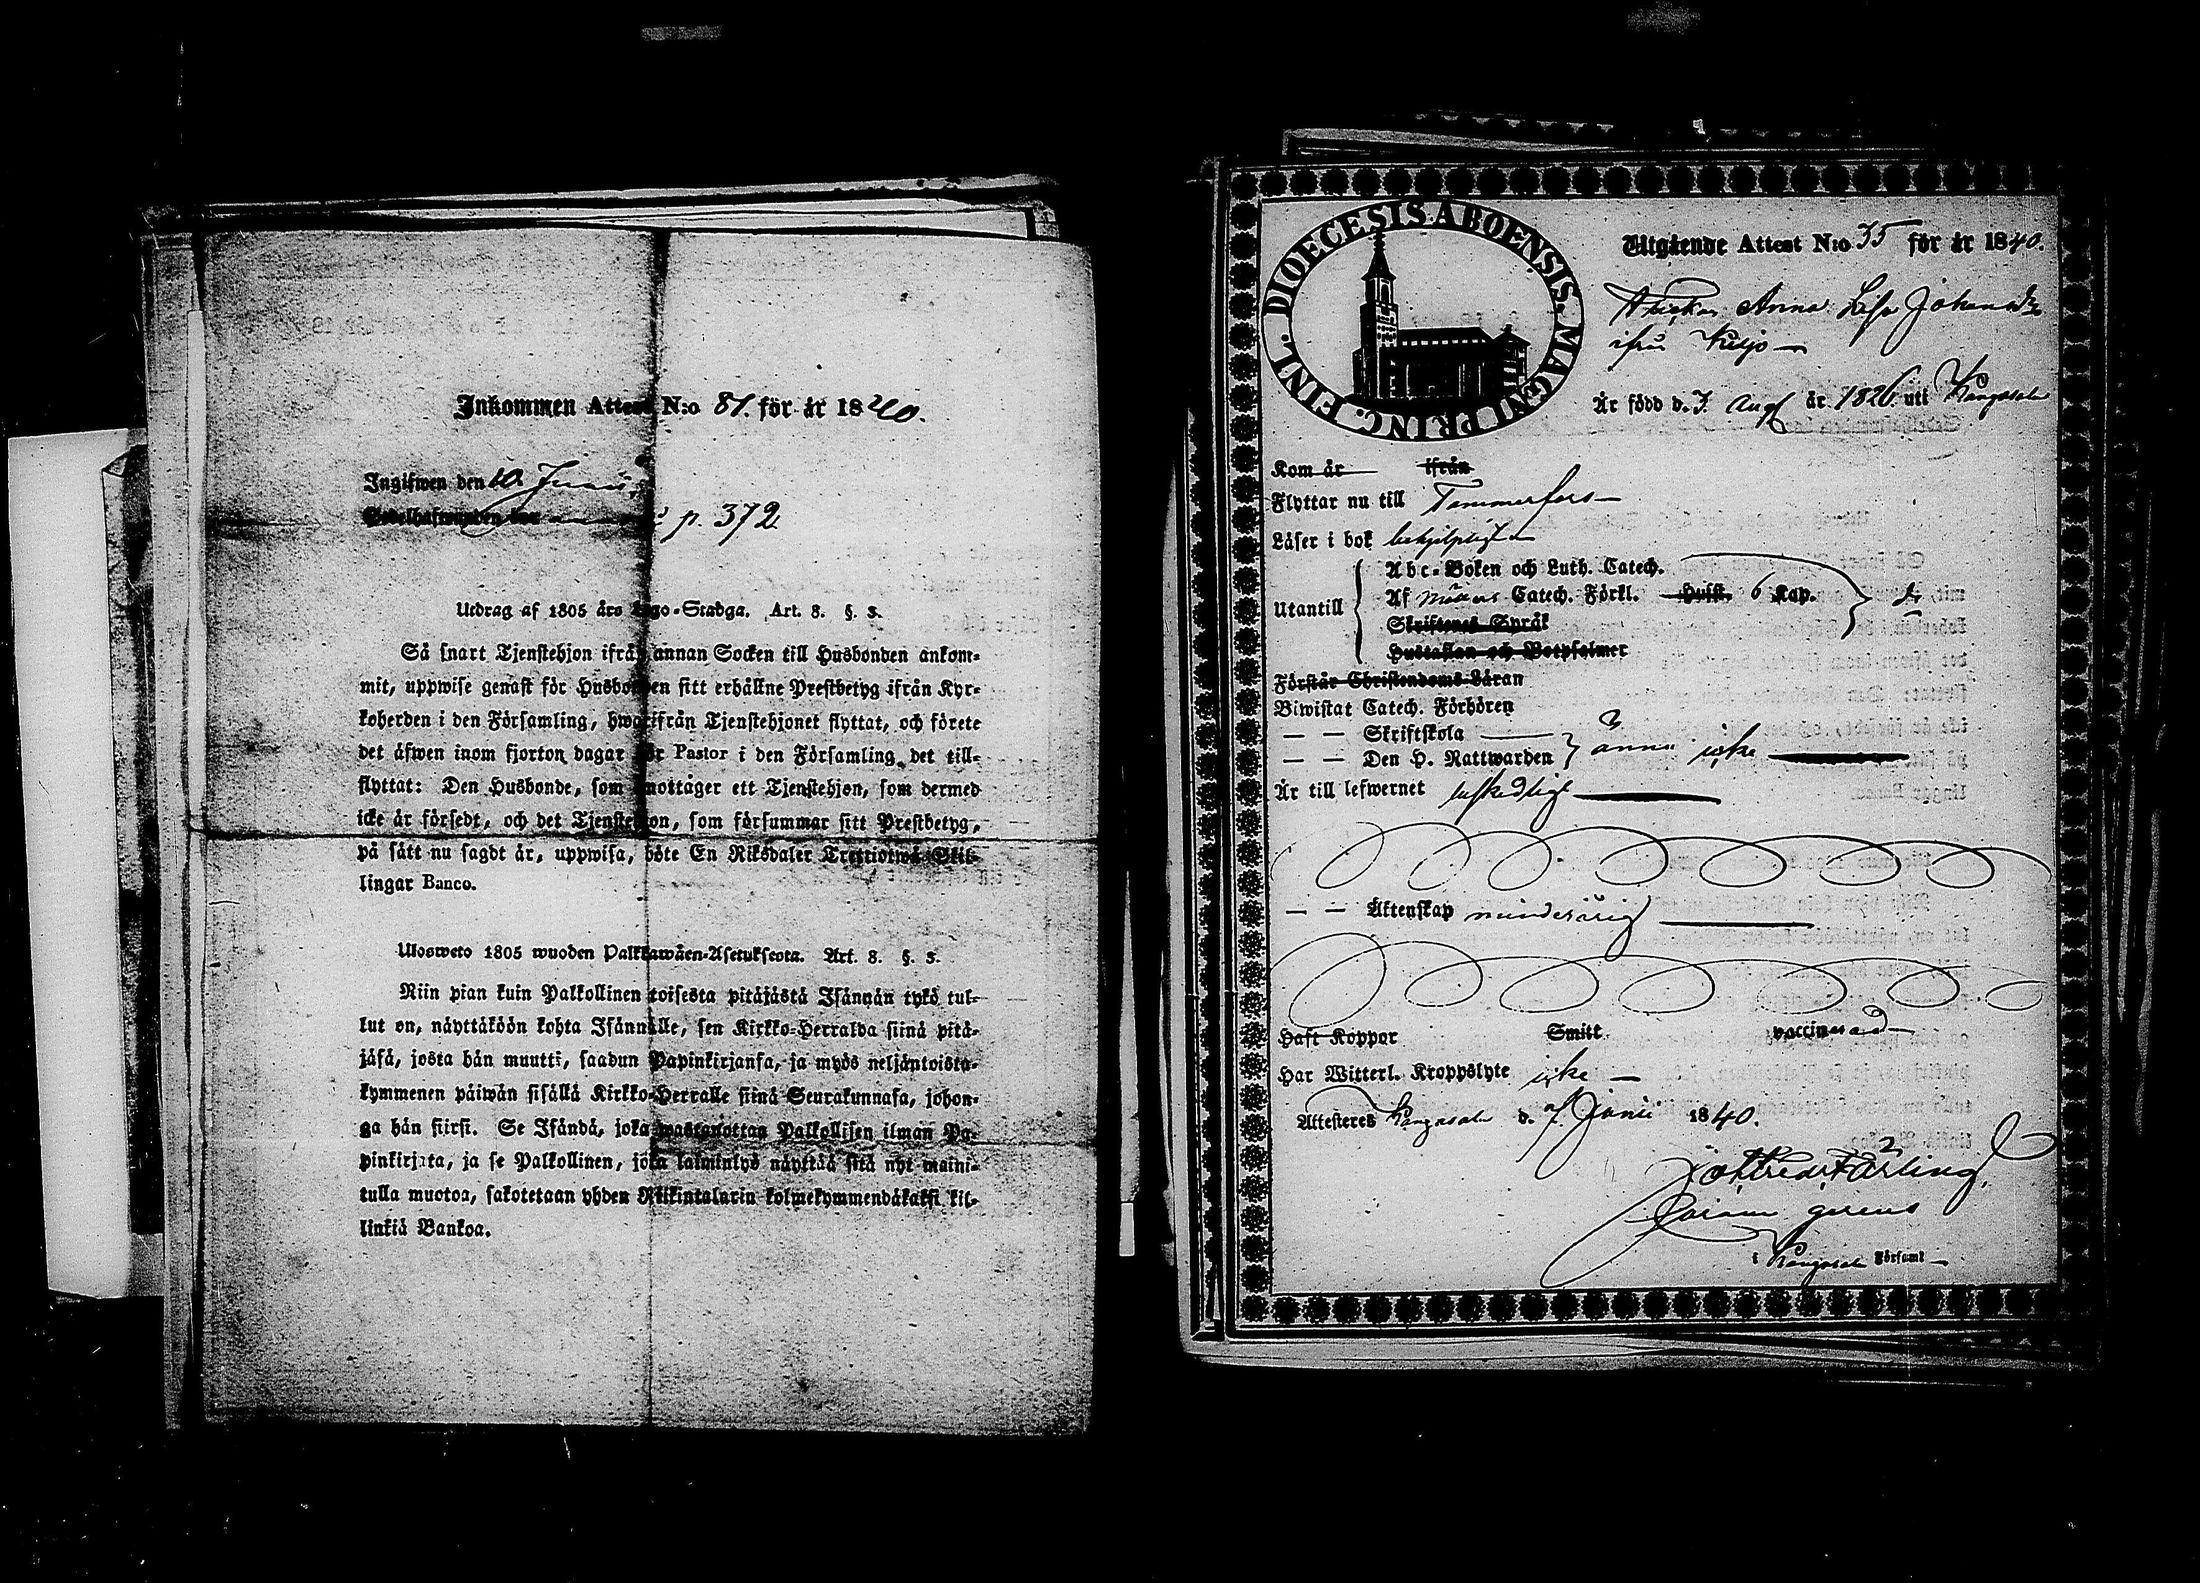 Inkommen Attest N:o 81. för år 1840.
Ingifwen den 10 Junii,
p. 372
Utdrag af 1805 års Lego-Stadga. Art. 8. §. 3.
Så snart Tjenstehjon ifrån annan Socken till Husbonden ankom-
mit, uppwise genast för Husbonden sitt erhållne Prestbetyg ifrån Kyr-
koherden i den Församling, hwarifrån Tjenstehjonet flyttat, och förete
det äfwen inom fjorton dagar för Pastor i den Församling det till-
flyttat: Den Husbonde, som emottager ett Tjenstehjon, som dermed
icke är försedt, och det Tjenstehjon, som försummar sitt Prestbetyg,
på sätt nu sagdt är, uppwisa, böte En Riksdaler Trettiotwå Skil-
lingar Banco.
Ulosweto 1805 wuoden Palkkawäen-Asetuksesta. Art. 8. §. 3.
Niin pian kuin Palkollinen toisesta pitäjästä Isännän tykö tul-
lut on, näyttäköön kohta Isännälle, sen Kirkko-Herralda siinä pitä-
jäsä, josta hän muutti, saadun Papinkirjansa, ja myös neljäntoista-
kymmenen päiwän sisällä Kirkko-Herralle siinä Seurakunnasa, johon-
ga hän siirsi. Se Isändä, joka wastanottaa Palkollisen ilman Pa-
pinkirjata, ja se Palkollinen, joka laiminlyö näyttää sitä nyt maini-
tulla muotoa, sakotetaan yhden Riikintalarin kolmekymmendäkaksi kil-
linkiä Bankoa.
FINL. DIOECESIS ABOENSIS. MAGNI PRINC.
Utgående Attest N:o 35 för år 1840.
Flickan Anna Lisa Johansdr
ifrån
Är född d. 3. Aug är 1826 uti Kangasala
Kom år ifrån
Flyttar nu till Tammerfors
Läser i bok behjelpligt
Abc-Boken och Luth. Catech.
Utantill Af Möllers Catech. Förkl. Hufst. 6 Kap. do
Skriftenes Språk
Hustaflan och Botpsalmer
Förstår Christendoms-Läran
Biwistat Catech. Förhören
— — Skriftskola
— — Den H. Nattwarden ännu icke
Är till lefwernet beskedlig
— — Äktenskap minderårig
Haft Koppor Smitt vaccinerad
Har Witterl. Kroppslyte icke
Attesteras Kangasala d. 7 Junii 1840.
Färling,
Coram gerens
i Kangasala Församl